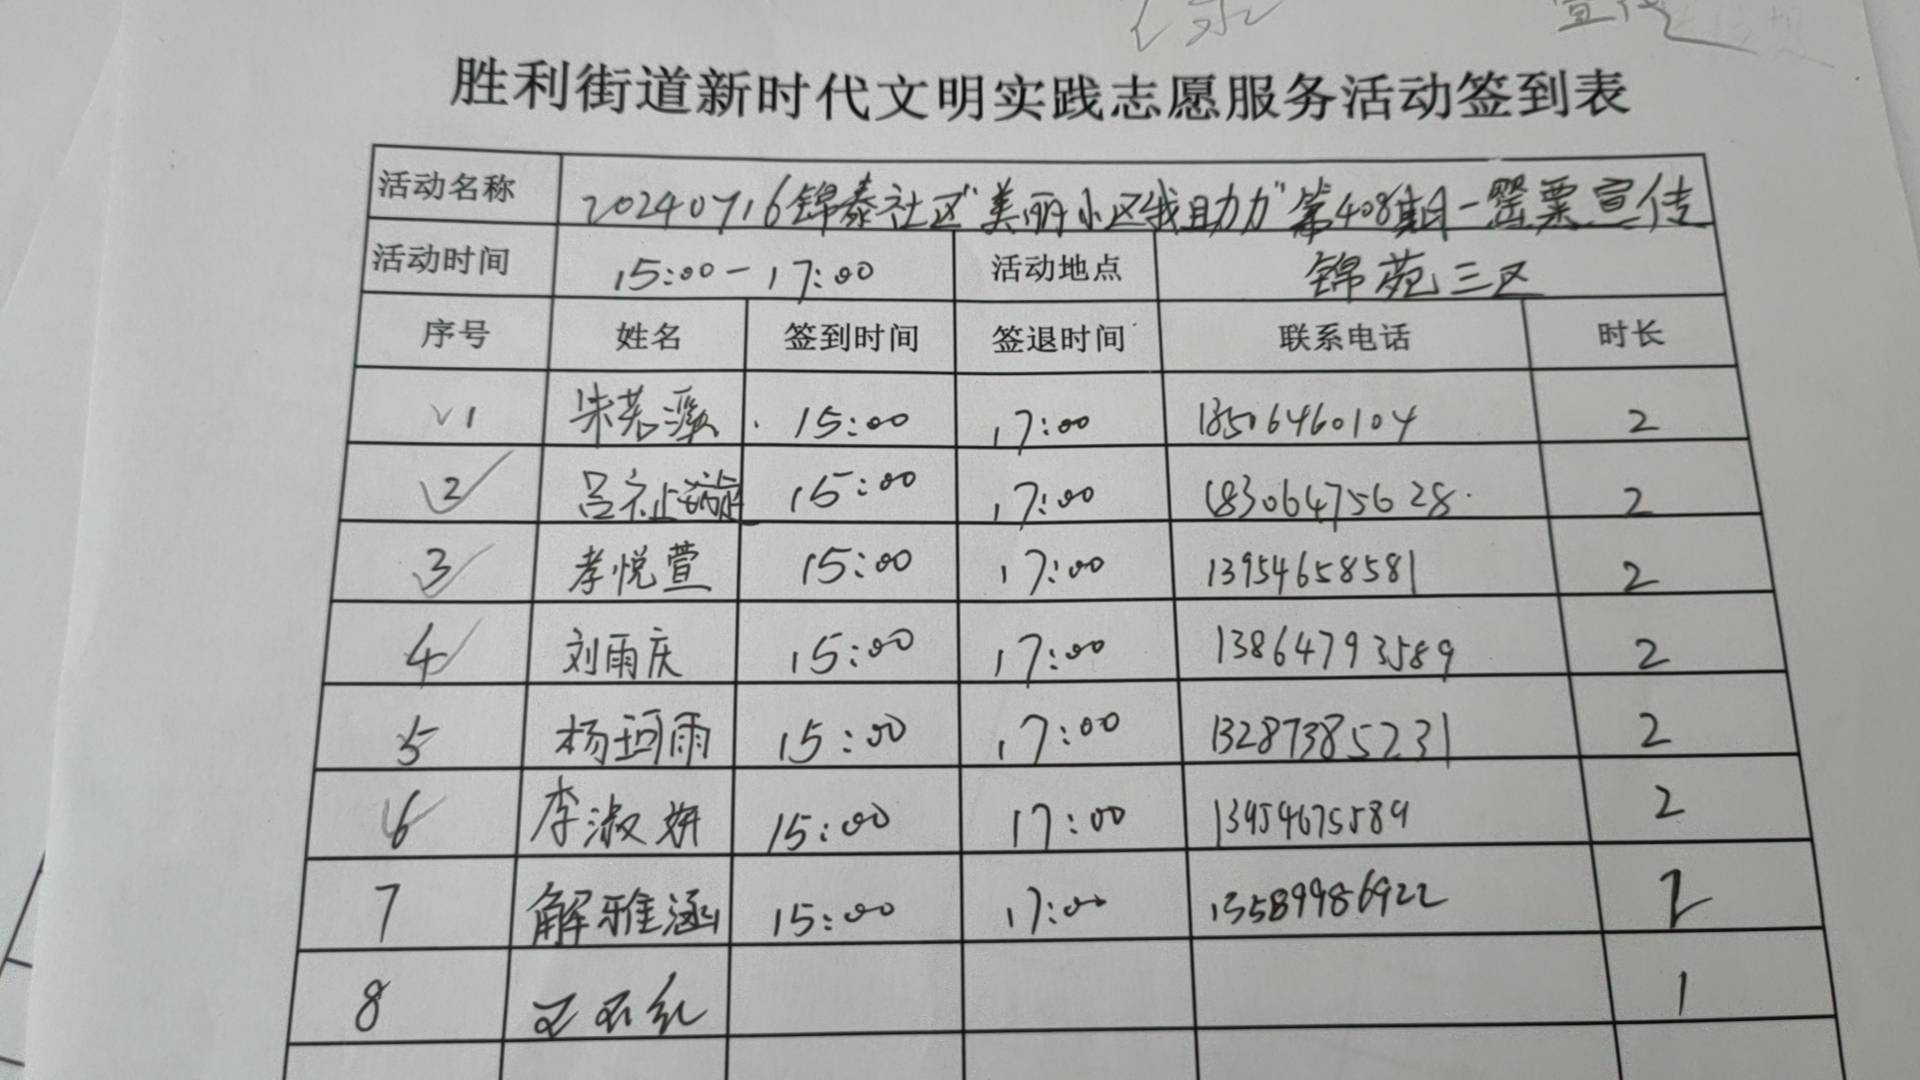 胜利街道新时代文明实践志愿服务活动签到表
活动名称 20240716锦泰社区"美丽小区我助力"第408期-罂粟宣传
活动时间 15:00-17:00 活动地点 锦苑三区
序号 姓名 签到时间 签退时间 联系电话 时长
1 朱若溪 15:00 17:00 13506460104 2
2 吕祉漩 15:00 17:00 18306475628 2
3 李悦萱 15:00 17:00 13954658581 2
4 刘雨庆 15:00 17:00 13864793589 2
5 杨珂雨 15:00 17:00 13287385231 2
6 李淑妍 15:00 17:00 13954675589 2
7 解雅涵 15:00 17:00 13589986922 2
8 1